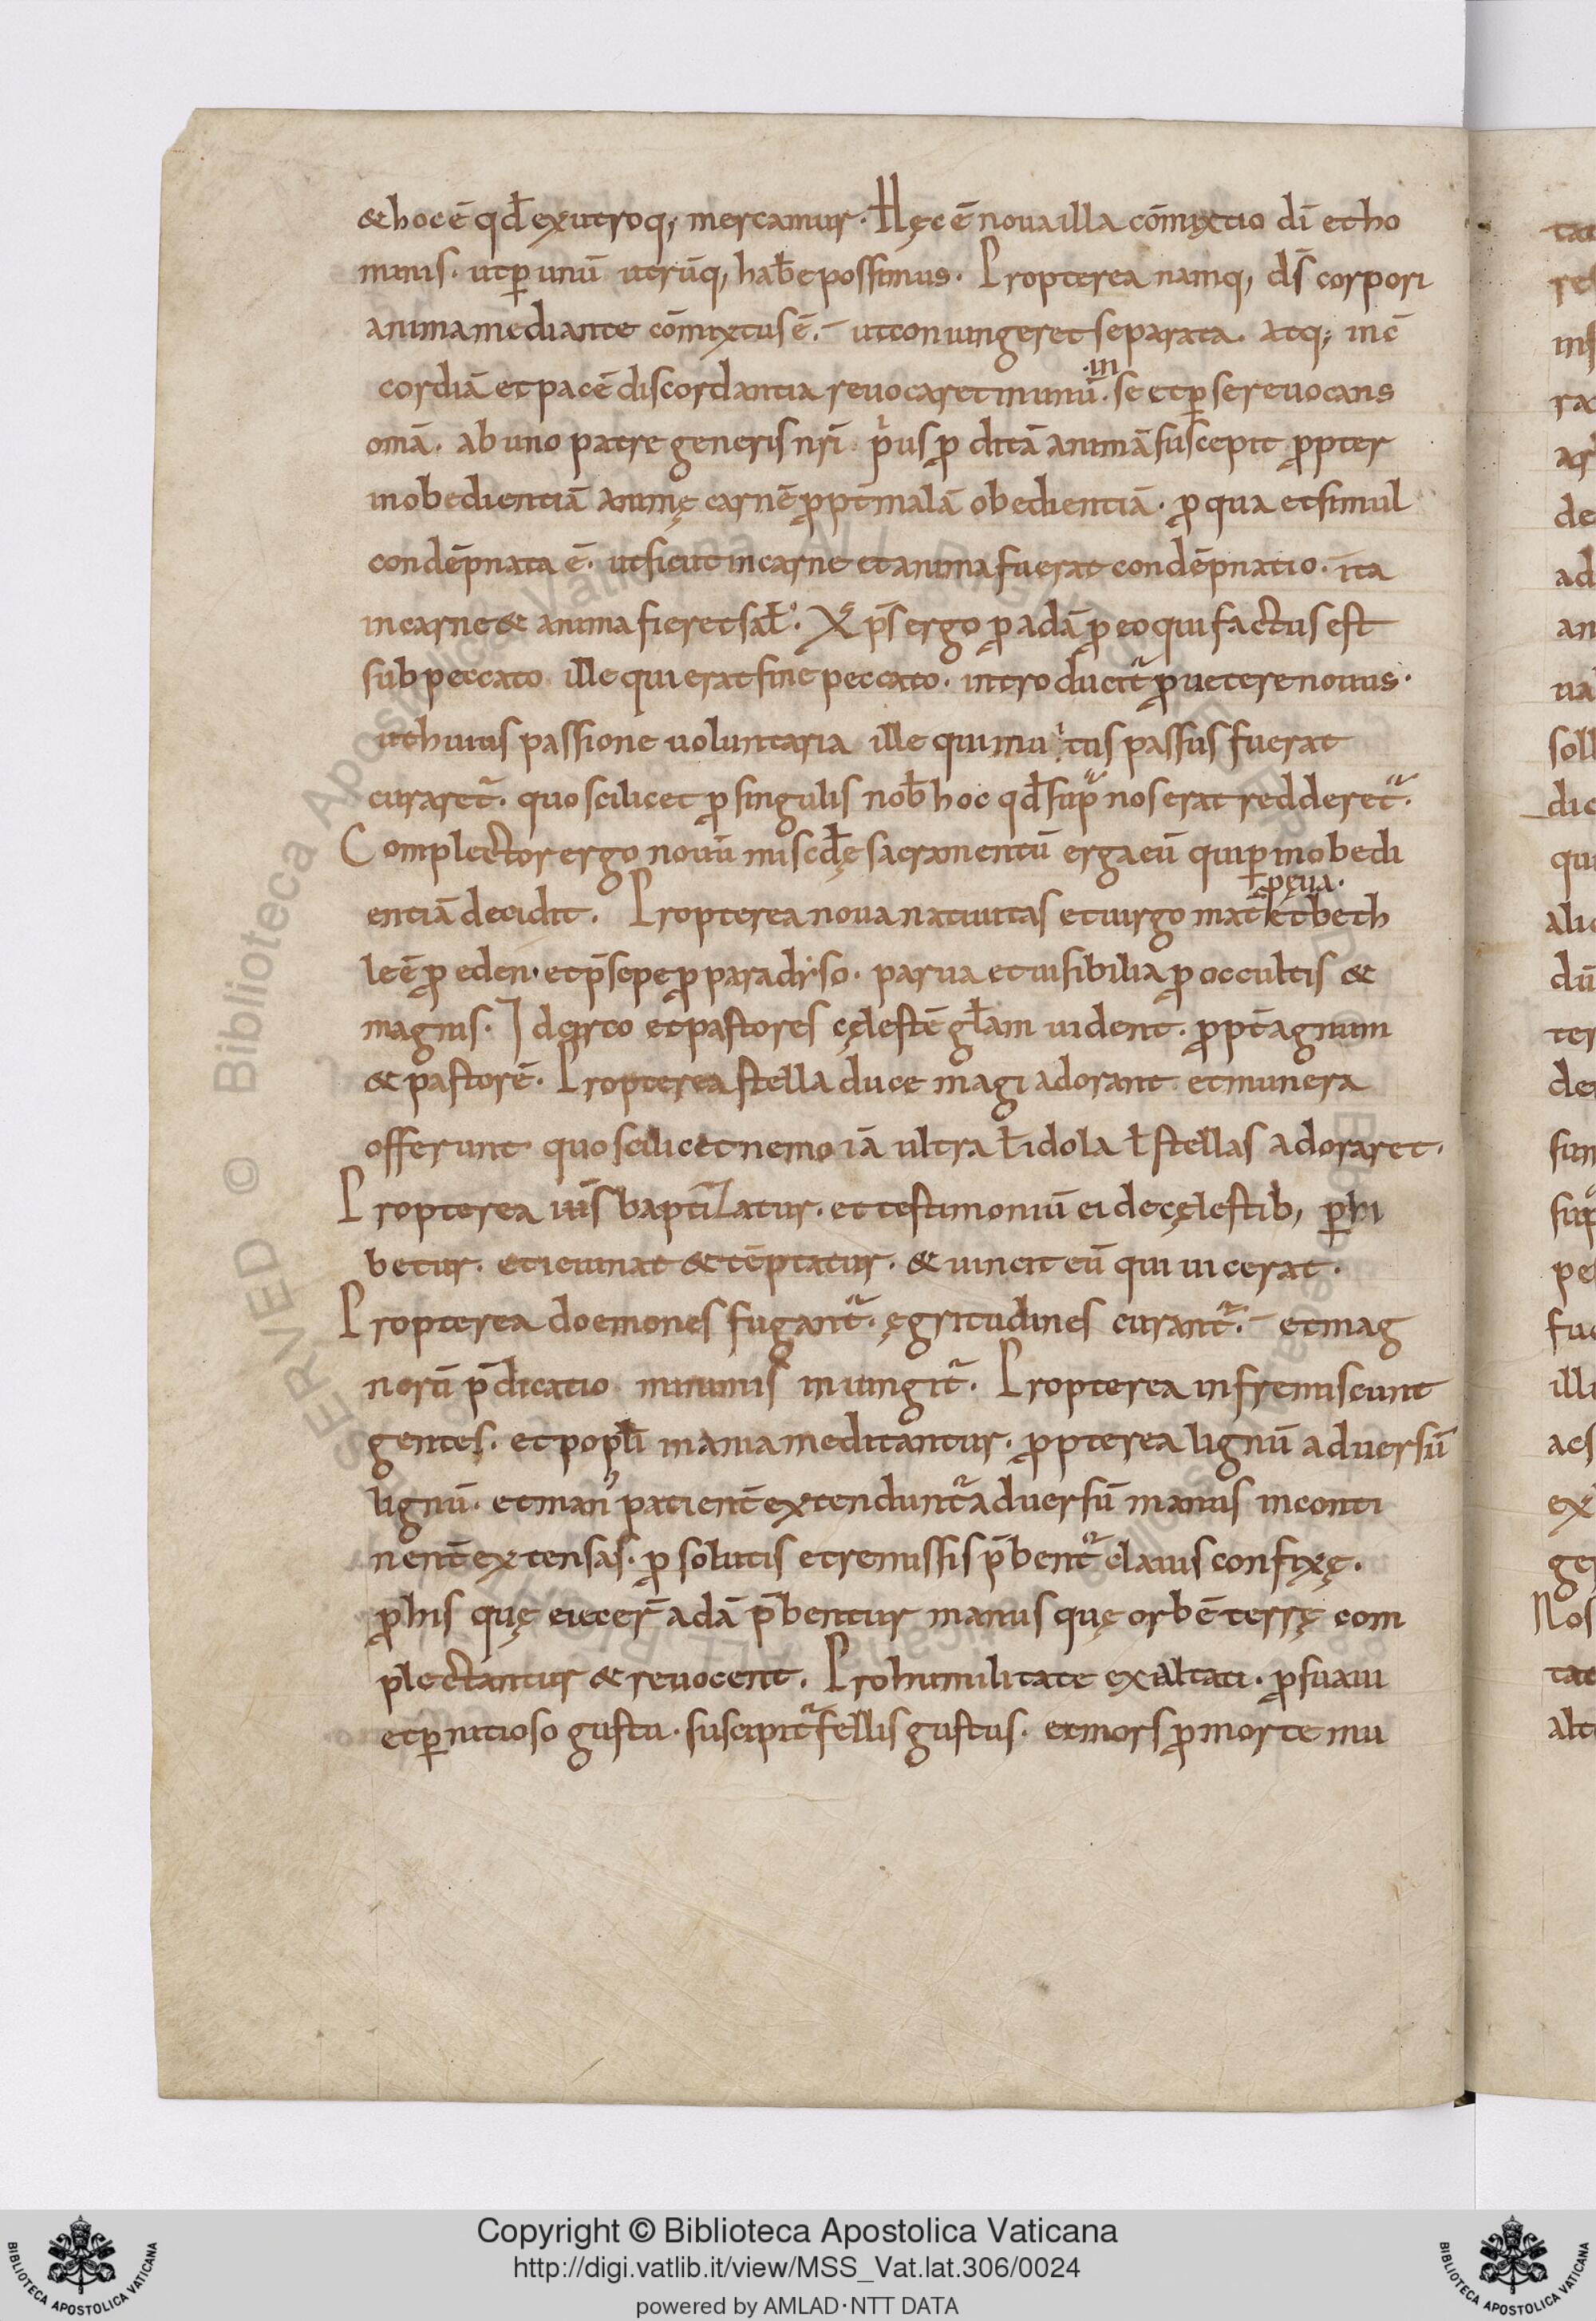 & hoc ē qđ ex utroq; mercamur. Hęc ē noua illa cōmixtio dī et ho
minis. ut ꝑ unū utrūq; hab̄e possimus. Propterea namq; d̄s corpori
anima mediante cōmixtus ē. ut coniungeret separata. atq; in c̄
cordiā et pacē discordantia reuocaret in unū. ·in· se et ꝑ se reuocans
omā. ab uno patre generis nr̄i. pus ꝓ ditā animā suscepit ꝓpter
inobedientiā animę carnē ꝓpt̄ malā obedientiā. ꝓ qua et simul
condēpnata ē. ut sicut in carne et anima fuerat condēpnatio. ita
in carne & anima fieret sał. Xp̄s ergo ꝓ adā ꝓ eo qui factus est
sub peccato ille qui erat sine peccato. introducit̃ ꝓ uetere nouus.
ut huius passione uoluntaria ille qui inuitus passus fuerat
curaret̃. quo scilicet ꝓ singulis nob̄ hoc qđ sup nos erat redderet̃.
Complector ergo nouū miscđę sacramentū erga eū qui ꝑ inobedi
entiā decidit. Propterea noua natiuitas et uirgo mat̄ ꝓ ęua. et beth
leē ꝓ eden. et p̄sepe ꝓ paradiso. parua et uisibilia ꝓ occultis &
magnis. Idcirco et pastores cęlestē głam uident. ꝓpt̄ agnum
& pastorē. Propterea stella duce magi adorant et munera
offerunt quo scilicet nemo iā ultra ł idola ł stellas adoraret.
Propterea ih̄s baptizatur. et testimoniū ei de cęlestib; ꝑhi
betur. et ieiunat & tēptatur. & uincit eū qui uicerat.
Propterea doemones fugant̃. ęgritudines curant̃. et mag
norū p̄dicatio minimis iniungit̃. Propterea infremiscunt
gentes. et popłi inania meditantur. ꝓpterea lignū aduersū
lignū. et man᾽ patient̄ extendunt̃ aduersū manus inconti
nent̄ extensas. ꝓ solutis et remissis p̄bent̃ clauis confixę.
ꝓ his quę eiecer̄ adā p̄bentur manus quę orbē terrę com
plectantur & reuocent. Pro humilitate exaltati. ꝓ suaui
et ꝑnitioso gustu. suscipit̃ fellis gustus. et mors ꝓ morte inu
Copyright © Biblioteca Apostolica Vaticana
http://digi.vatlib.it/view/MSS_Vat.lat.306/0024
powered by AMLAD·NTT DATA